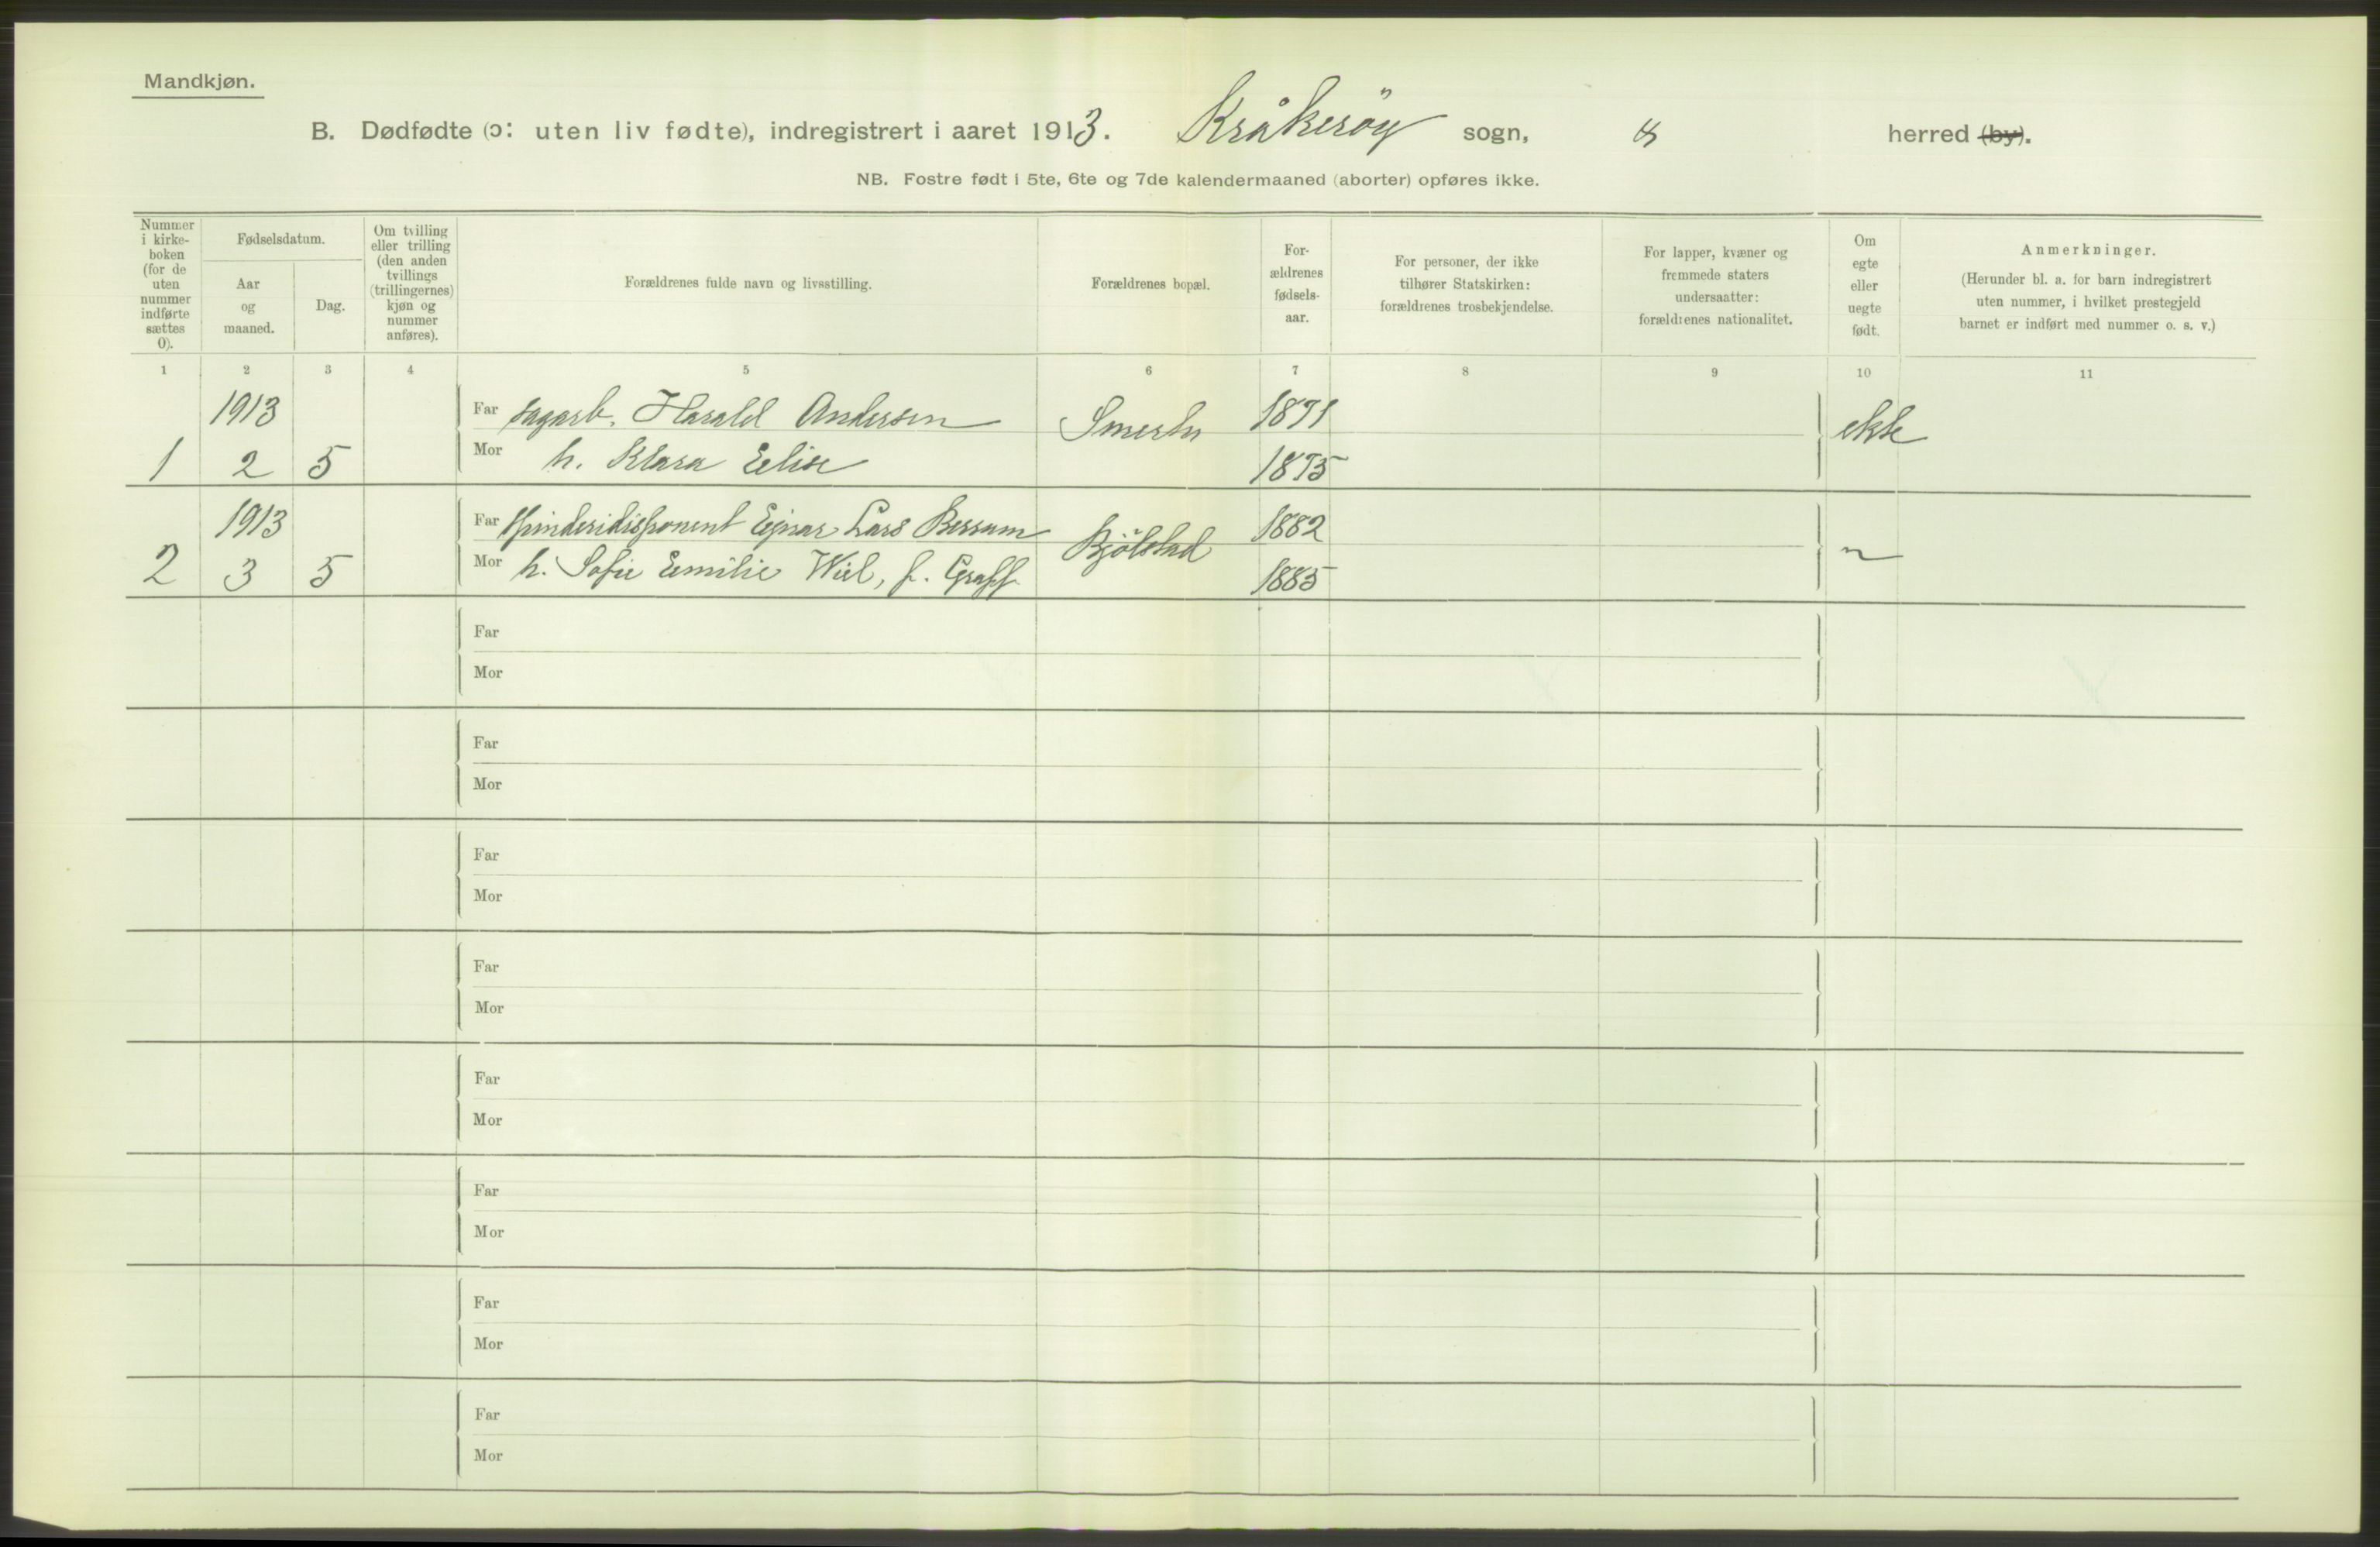 Mandkjøn.
B. Dødfødte (ɔ: uten liv fødte), indregistrert i aaret 1913. Kråkerøy sogn, herred (by).
NB. Fostre født i 5te, 6te og 7de kalendermaaned (aborter) opføres ikke.
Nummer
i kirke-
boken
(for de
uten
nummer
indførte
sættes
0).
Fødselsdatum.
Aar
og
maaned.
Dag.
Om tvilling
eller trilling
(den anden
tvillings
(trillingernes)
kjøn og
nummer
anføres).
Forældrenes fulde navn og livsstilling.
Forældrenes bopæl.
For-
ældrenes
fødsels-
aar.
For personer, der ikke
tilhører Statskirken:
forældrenes trosbekjendelse.
For lapper, kvæner og
fremmede staters
undersaatter:
forældrenes nationalitet.
Om
egte
eller
uegte
født.
Anmerkninger.
(Herunder bl. a. for barn indregistrert
uten nummer, i hvilket prestegjeld
barnet er indført med nummer o. s. v.)
1 2 3 4 5 6 7 8 9 10 11
1913 Far sagarb. Harald Andersen 1871
1 2 5 Mor h. Klara Elise 1875 ekte
1913 Far Spinderidisponent Ejnar Lars Bessum Bjölstad 1882
2 3 5 Mor h. Sofie Emilie Wiel, f. Graff 1885 "
Far
Mor
Far
Mor
Far
Mor
Far
Mor
Far
Mor
Far
Mor
Far
Mor
Far
Mor